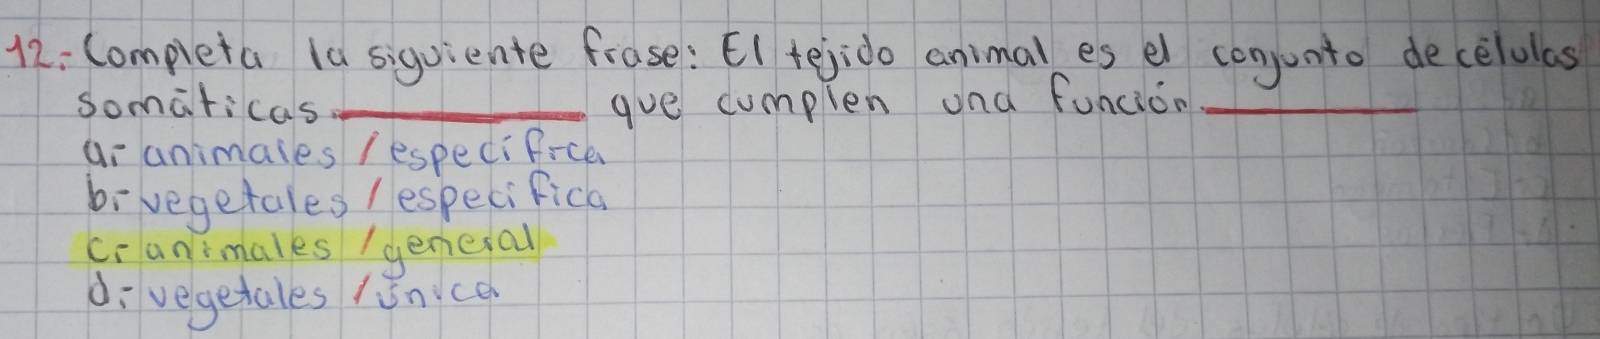 12.- Completa la siguiente frase: El tejido animal es el conjunto de células
somáticas. __________ que cumplen una función. __________
a.- animales / especifica
b.- vegetales / especifica
c.- animales / general
d.- vegetales / única